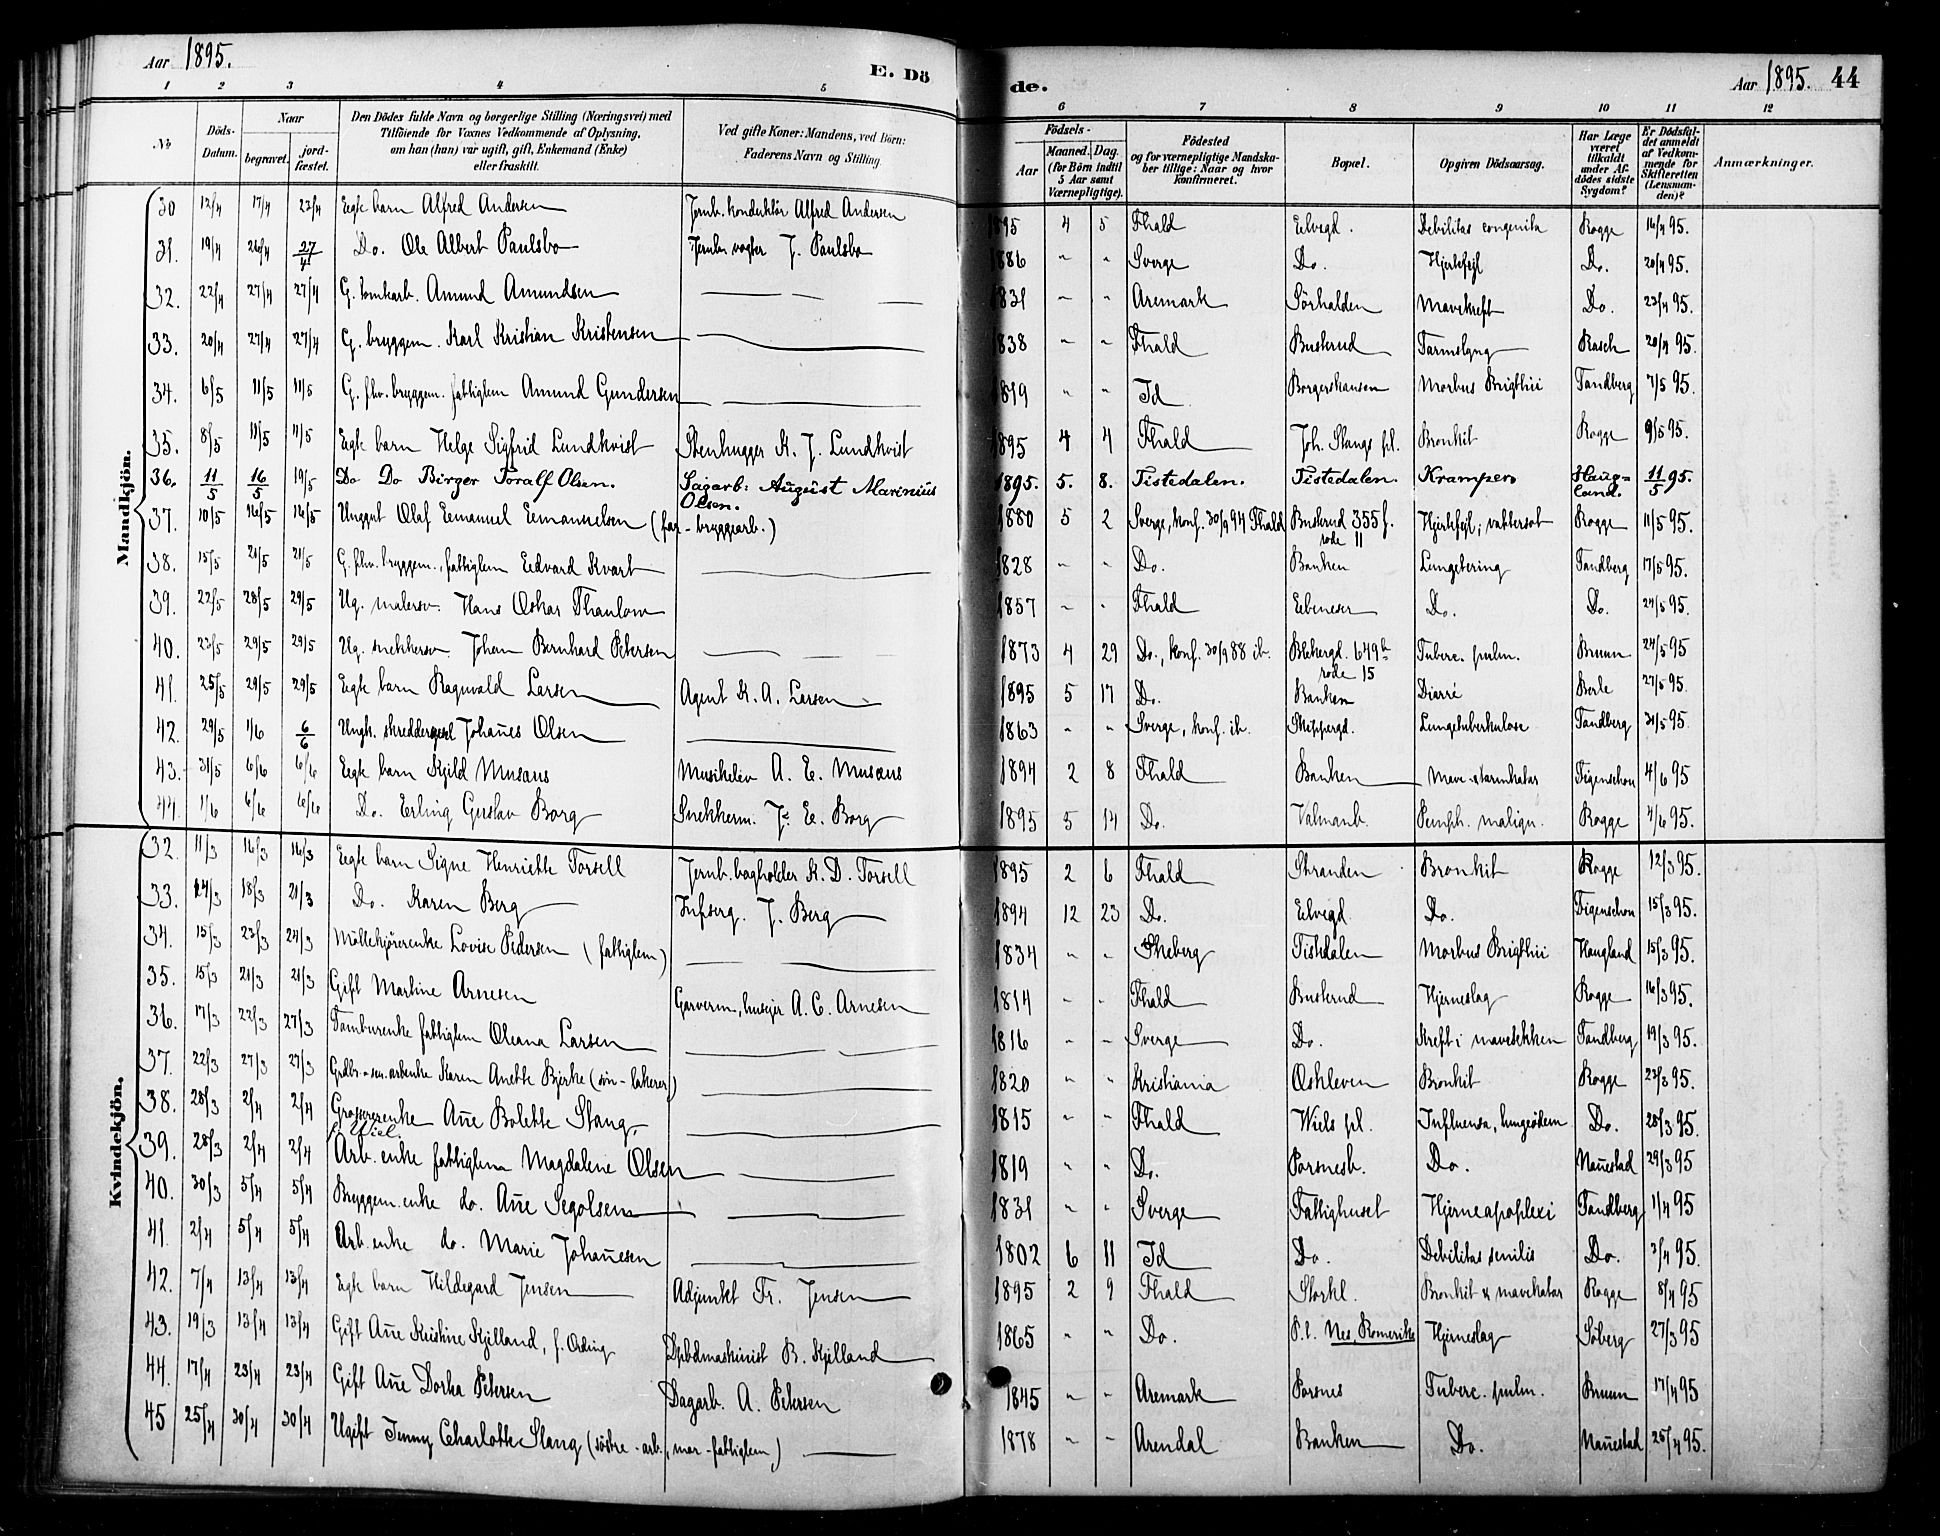 Aar 1895. E. Dö de. Aar 1895. 44
1 2 3 4 5 6 7 8 9 10 11 12
No
Döds-Datum.
Naar begravet. jordfæstet.
Den Dödes fulde Navn og borgerlige Stilling (Næringsvei) med
Tilföiende for Voxnes Vedkommende af Oplysning,
om han (hun) var ugift, gift, Enkemand (Enke)
eller fraskilt.
Ved gifte Koner: Mandens, ved Börn:
Faderens Navn og Stilling.
Födsels-
Aar Maaned. Dag.
(for Börn indtil 5 Aar samt Værnepligtige).
Födested
og for værnepligtige Mandskaber tillige: Naar og hvor konfirmeret.
Bopæl.
Opgiven Dödsaarsag.
Har Læge været tilkaldt under Afdödes sidste Sygdom?
Er Dödsfaldet anmeldt af Vedkommende for Skifteretten (Lensmanden)?
Anmærkninger.
Mandkjön.
30 12/4 17/4 22/4 Egte barn Alfred Andersen Jernb. konduktör Alfred Andersen 1895 4 5 Fhald Elvegd. Debilitas congenita Rogge 16/4 95.
31. 19/4 26/4 27/4 Do. Ole Albert Paulsbo Jernb. vogter J. Paulsbo 1886 " " Sverge Do. Hjertefejl Do. 20/4 95.
32. 22/4 27/4 27/4 G. tomtarb. Amund Amundsen 1831 " " Aremark Sörhalden Mavekreft Do. 23/4 95.
33. 20/4 27/4 27/4 G. bryggem. Karl Kristian Kristensen 1838 " " Fhald Buskrud Tarmslyng Rasch 20/4 95.
34. 6/5 11/5 11/5 G. fhv. bryggem. fattiglem Amund Gundersen 1819 " " Id Borgershausen Morbus Brigthii Tandberg 7/5 95.
35. 8/5 11/5 11/5 Egte barn Helge Sigfrid Lundkvist Stenhugger K. J. Lundkvist 1895 4 4 Fhald Joh. Stangs pl. Bronkit Rogge 9/5 95.
36. 11/5 16/5 19/5 Do Do Birger Toralf Olsen. Sagarb: August Marinius Olsen. 1895. 5. 8. Tistedalen. Tistedalen. Kramper Haugland. 11/5 95.
37. 10/5 16/5 16/5 Unggut Olaf Emanuel Emanuelsen (far - bryggearb.) 1880 5 2 Sverge, konf. 30/9 94 Fhald Buskrud 355 f. rode 11 Hjertefejl, vattersot Rogge 11/5 95.
38. 15/5 21/5 21/5 G. fhv. bryggem., fattiglem Edvard Kvart 1828 " " Do. Banken Lungetering Tandberg 17/5 95.
39. 22/5 28/5 29/5 Ug. malersv. Hans Oskar Thaulow 1857 " " Fhald Ebeneser Do. Do. 24/5 95.
40. 23/5 29/5 29/5 Ug. snekkersv. Johan Bernhard Petersen 1873 4 29 Do., konf. 30/9 88 ib. Blekergd. 649 b rode 15 Tuberc. pulm. Bruun 24/5 95
41. 25/5 29/5 29/5 Egte barn Ragnvald Larsen Agent K. A. Larsen 1895 5 17 Do. Banken Diarré Berle 27/5 95.
42. 29/5 1/6 6/6 Ungk. skreddersvel Johan̄es Olsen 1863 " " Sverge, konf. ib. Skippergd. Lungetuberkulose Tandberg 31/5 95.
43. 31/5 6/6 6/6 Egte barn Kjild Musæus Musikelev A. E. Musæus 1894 2 8 Fhald Banken Mave & tarmkatar Figenschou 4/6 95
44. 1/6 6/6 6/6 Do. Erling Gustav Borg Snekkerm. J. E. Borg 1895 5 14 Do. Valmanb. Pemph. malign. Rogge 4/6 95.
Kvindekjön.
32. 11/3 16/3 16/3 Egte barn Signe Henriette Torsell Jernb. bogholder K. D. Torsell 1895 2 6 Fhald Stranden Bronkit Rogge 12/3 95.
33. 14/3 18/3 21/3 Do. Karen Berg Infserg. J. Berg 1894 12 23 Do. Elvegd. Do. Figenschou 15/3 95.
34. 15/3 23/3 24/3 Möllekjörerenke Lovise Pedersen (fattiglem) 1834 " " Skeberg Tistedalen Morbus Brigthii Haugland 15/3 95.
35. 15/3 21/3 21/3 Gift Martine Arnesen Garverm., husejer A. C. Arnesen 1814 " " Fhald Buskrud Hjerneslag Rogge 16/3 95.
36. 17/3 22/3 27/3 Tamburenke fattiglem Oleana Larsen 1816 " " Sverge Do. Kreft i mavesekken Tandberg 19/3 95.
37. 22/3 27/3 27/3 Grdbr. - sen. arbenke Karen Anette Bjerke (sön - lakerer) 1820 " " Kristiania Oskleven Bronkit Rogge 23/3 95.
38. 28/3 2/4 2/4 Grossererenke An̄e Bolette Stang, f. Wiel. 1815 " " Fhald Wiels pl. Influensa, lungeödem Do. 28/3 95.
39. 28/3 2/4 2/4 Arb. enke fattiglem Magdalene Olsen 1819 " " Do. Porsnesb. Do. Nan̄estad 29/3 95
40. 30/3 5/4 5/4 Bryggem. enke do. An̄e Segolsen 1831 " " Sverge Fattighuset Hjerneapoplexi Tandberg 1/4 95
41. 2/4 5/4 5/4 Arb. enke do. Marie Johan̄esen 1802 6 11 Id Do. Debilitas senilis Do. 3/4 95.
42. 7/4 13/4 13/4 Egte barn Hildegard Jensen Adjunkt Fr. Jensen 1895 2 9 Fhald Storkl. Bronkit & mavekatar Rogge 8/4 95
43. 19/3 13/4 13/4 Gift An̄e Kristine Kjelland, f. Ording Dpbdmaskinist B. Kjelland 1865 " " Do. P.t. Nes, Romerike Hjerneslag Söberg 27/3 95
44. 17/4 23/4 23/4 Gift An̄e Dorthea Petersen Dagarb. A. Petersen 1845 " " Aremark Porsnes Tuberc. pulm. Bruun 17/4 95
45 25/4 30/4 30/4 Ugift Jenny Charlotte Stang (söstre - arb., mor - fattiglem) 1878 " " Arendal Banken Do. Nan̄estad 25/4 95.